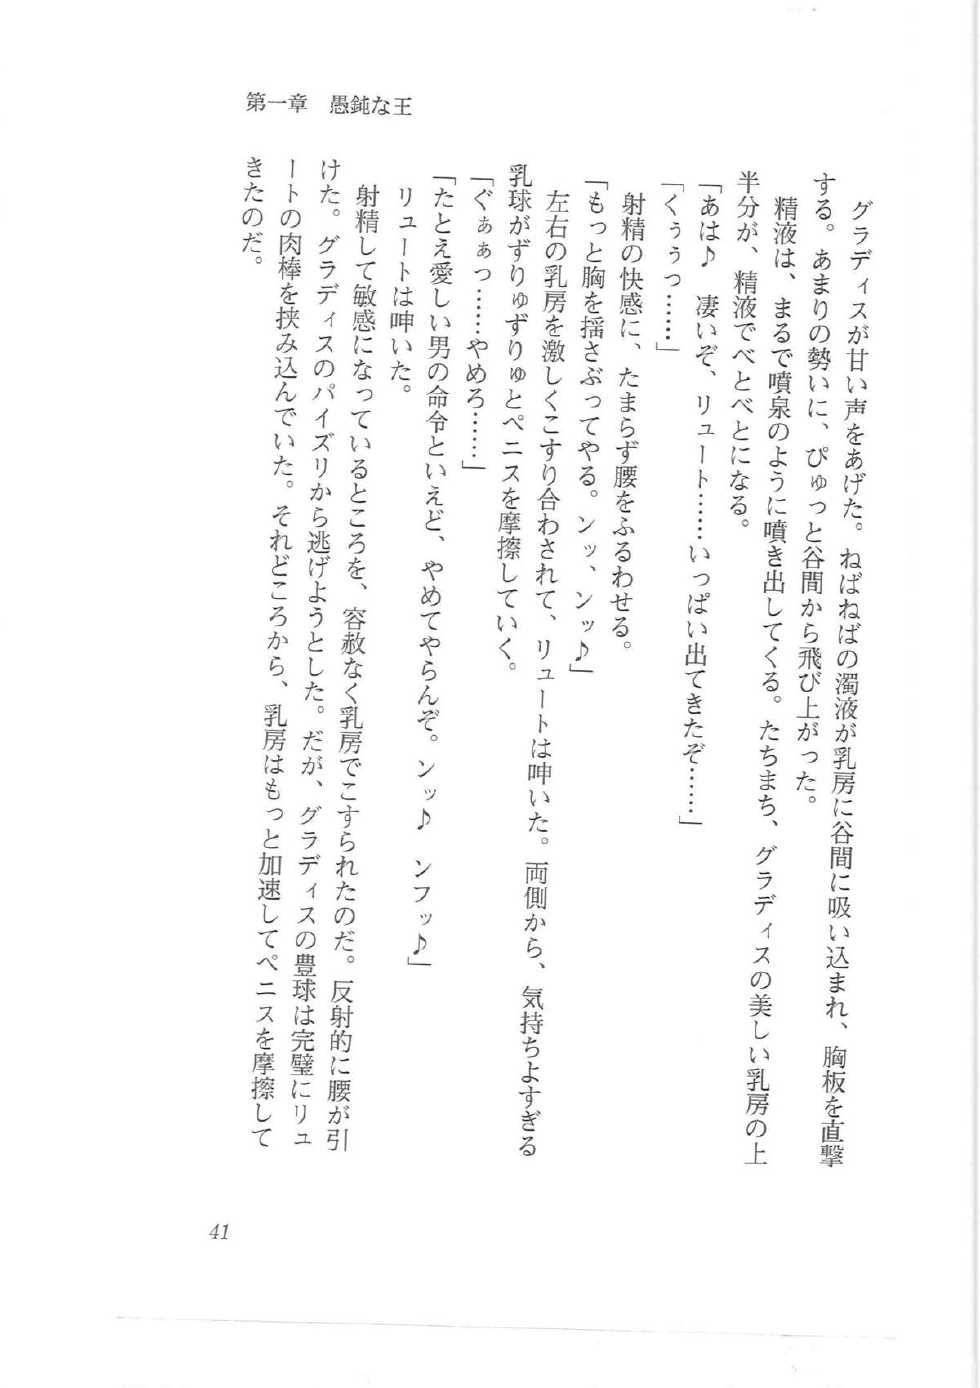 第一章　愚鈍な王
　グラディスが甘い声をあげた。ねばねばの濁液が乳房に谷間に吸い込まれ、胸板を直撃
する。あまりの勢いに、ぴゅっと谷間から飛び上がった。
　精液は、まるで噴泉のように噴き出してくる。たちまち、グラディスの美しい乳房の上
半分が、精液でべとべとになる。
「あは♪　凄いぞ、リュート……いっぱい出てきたぞ……」
「くぅぅっ……」
　射精の快感に、たまらず腰をふるわせる。
「もっと胸を揺さぶってやる。ンッ、ンッ♪」
　左右の乳房を激しくこすり合わされて、リュートは呻いた。両側から、気持ちよすぎる
乳球がずりゅずりゅとペニスを摩擦していく。
「ぐぁぁっ……やめろ……」
「たとえ愛しい男の命令といえど、やめてやらんぞ。ンッ♪　ンフッ♪」
　リュートは呻いた。
　射精して敏感になっているところを、容赦なく乳房でこすられたのだ。反射的に腰が引
けた。グラディスのパイズリから逃げようとした。だが、グラディスの豊球は完璧にリュ
ートの肉棒を挟み込んでいた。それどころから、乳房はもっと加速してペニスを摩擦して
きたのだ。
41